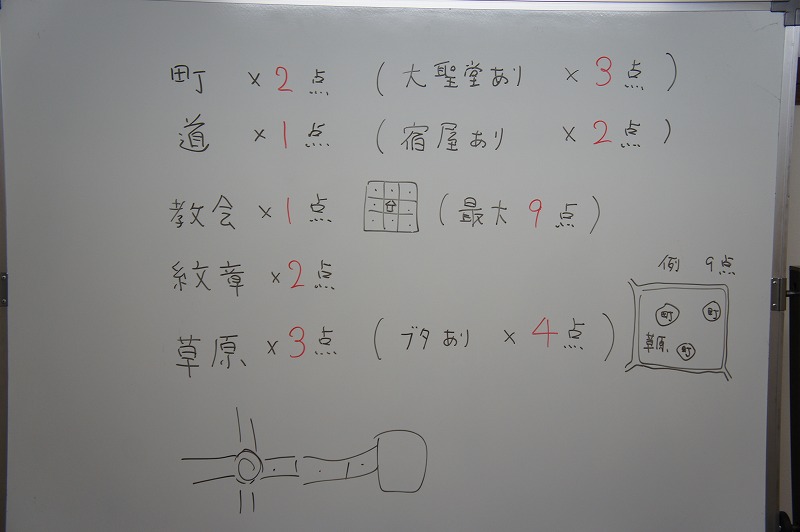 町 × 2 点 (大聖堂あり × 3 点)
道 × 1 点 (宿屋あり × 2 点)
教会 × 1 点 (最大 9 点)
紋章 × 2 点
草原 × 3 点 (ブタあり × 4 点)
例 9点
町 町
草原 町